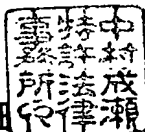 中村成瀬
特許法律
事務所印